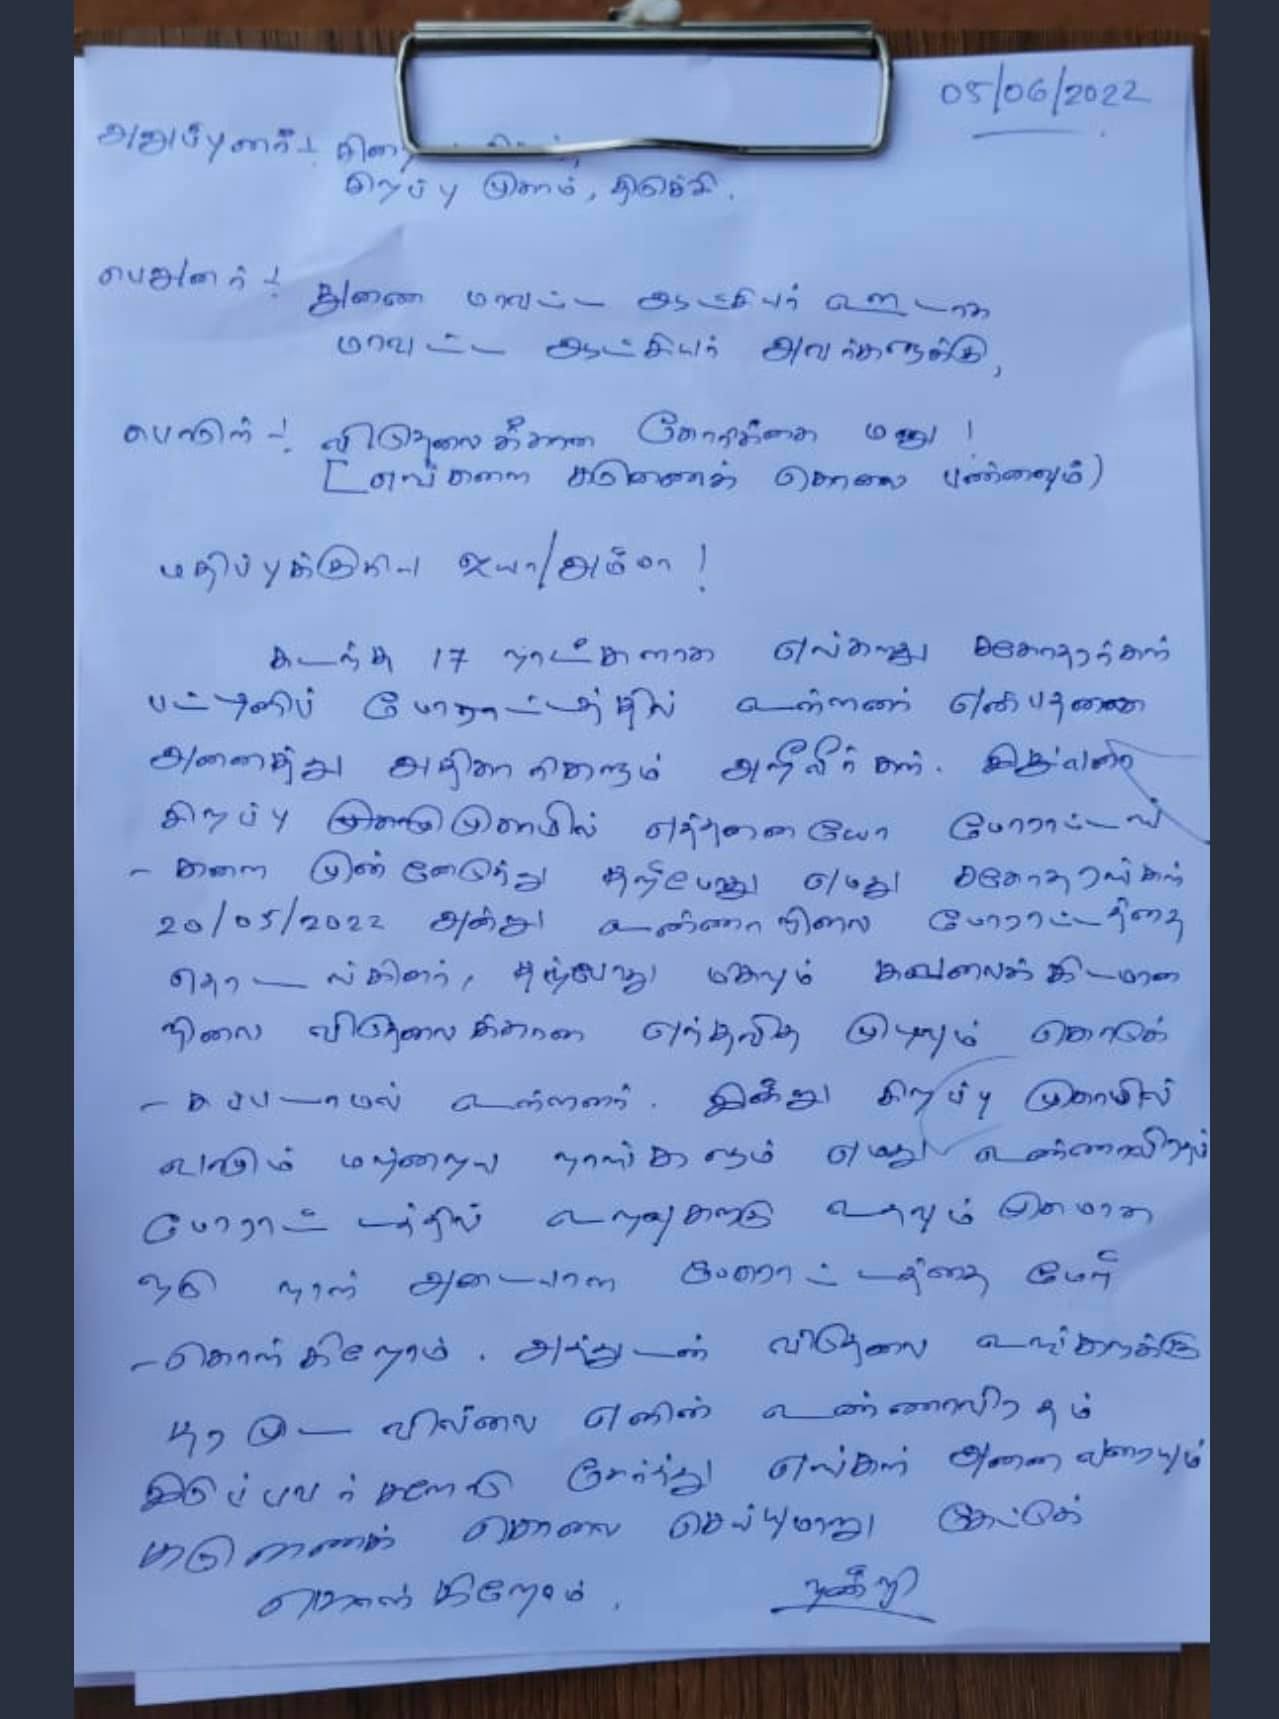 05/06/2022
அனுப்புனர் :-
சிறப்பு முகாம், திருச்சி.
பெறுனர் :-
துணை மாவட்ட ஆட்சியர் ஊடாக
மாவட்ட ஆட்சியர் அவர்களுக்கு,
பொருள் :- விடுதலைக்கான கோரிக்கை மனு!
[எங்களை கருணைக் கொலை பண்ணவும்)
மதிப்புக்குரிய ஐயா/அம்மா!
கடந்த 17 நாட்களாக எங்களது சகோதரர்கள்
பட்டினிப் போராட்டத்தில் உள்ளனர் என்பதனை
அனைத்து அதிகாரிகளும் அறிவீர்கள். இதுவரை
சிறப்பு முகாமில் எத்தனையோ போராட்டங்
- களை முன்னெடுத்து தற்போது எமது சகோதரர்கள்
20/05/2022 அன்று உண்ணாநிலை போராட்டத்தை
தொடங்கினர், தற்போது மிகவும் கவலைக்கிடமான
நிலை விடுதலைக்கான எந்தவித முடிவும் கொடுக்
- கப்படாமல் உள்ளனர். இன்று சிறப்பு முகாமில்
வாழும் மற்றைய நாங்களும் எமது உண்ணாவிரதப்
போராட்டத்தில் உறவுகளுக்கு உதவும் முகமாக
ஒரு நாள் அடையாள போராட்டத்தை மேற்
- கொள்கிறோம். அத்துடன் விடுதலை உங்களுக்கு
தர முடியவில்லை எனின் உண்ணாவிரதம்
இருப்பவர்களோடு சேர்ந்து எங்கள் அனைவரையும்
கருணைக் கொலை செய்யுமாறு கேட்டுக்
கொள்கிறோம். நன்றி